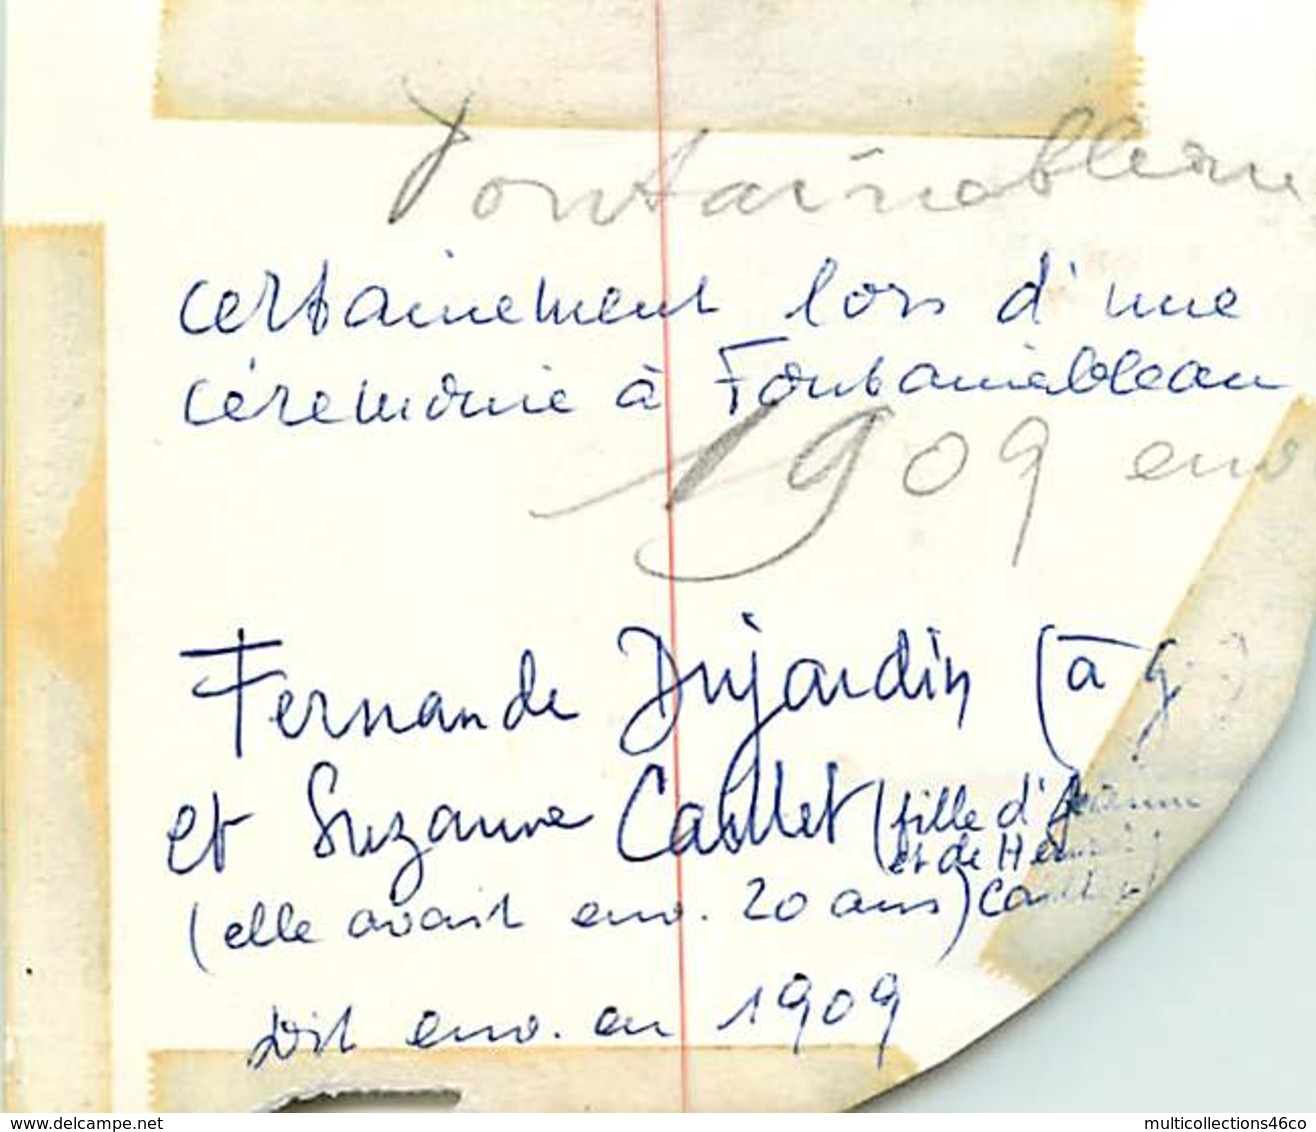 Fontainebleau
certainement lors d'une
cérémonie à Fontainebleau
1909 env
Fernande Dujardin (à g.)
et Suzanne Caillet (fille d'
et de Henri
(elle avait env. 20 ans)
soit env. en 1909
www.delcampe.net
multicollections46co